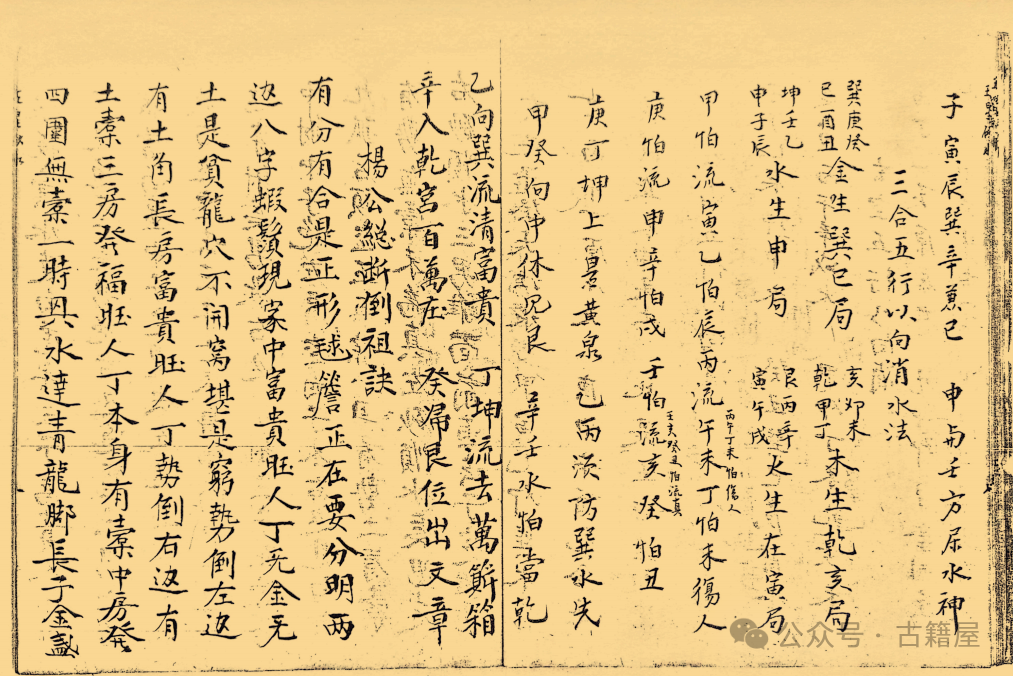 子寅辰巽辛兼巳 申与壬方尿水神
三合五行以向消水法
巽庚癸
巳酉丑 金生巽巳局 亥卯未
乾甲丁 木生乾亥局
坤壬乙
申子辰 水生申局 艮丙辛
寅午戌 火生在寅局
甲怕流寅乙怕辰丙流午未丁怕未傷人
丙午丁未怕傷人
庚怕流申辛怕戌壬怕流亥癸怕丑
壬亥癸丑怕流真
庚丁坤上是黄泉 乙丙須防巽水先
甲癸向中休見艮 辛壬水怕當乾
乙向巽流清富貴 丁坤流去萬箱
辛入乾宮百萬庄 癸歸艮位出文章
楊公總断倒祖訣
有分有合是正形毬簷正在要分明兩
边八字蝦鬚現家中富貴旺人丁无金无
土是貧龍穴不開窩堪是窮勢倒左边
有土角長房富貴旺人丁勢倒右边有
土槖三房發福旺人丁本身有槖中房發
四圍無槖一時興水達青龍脚長子金
公众号·古籍屋